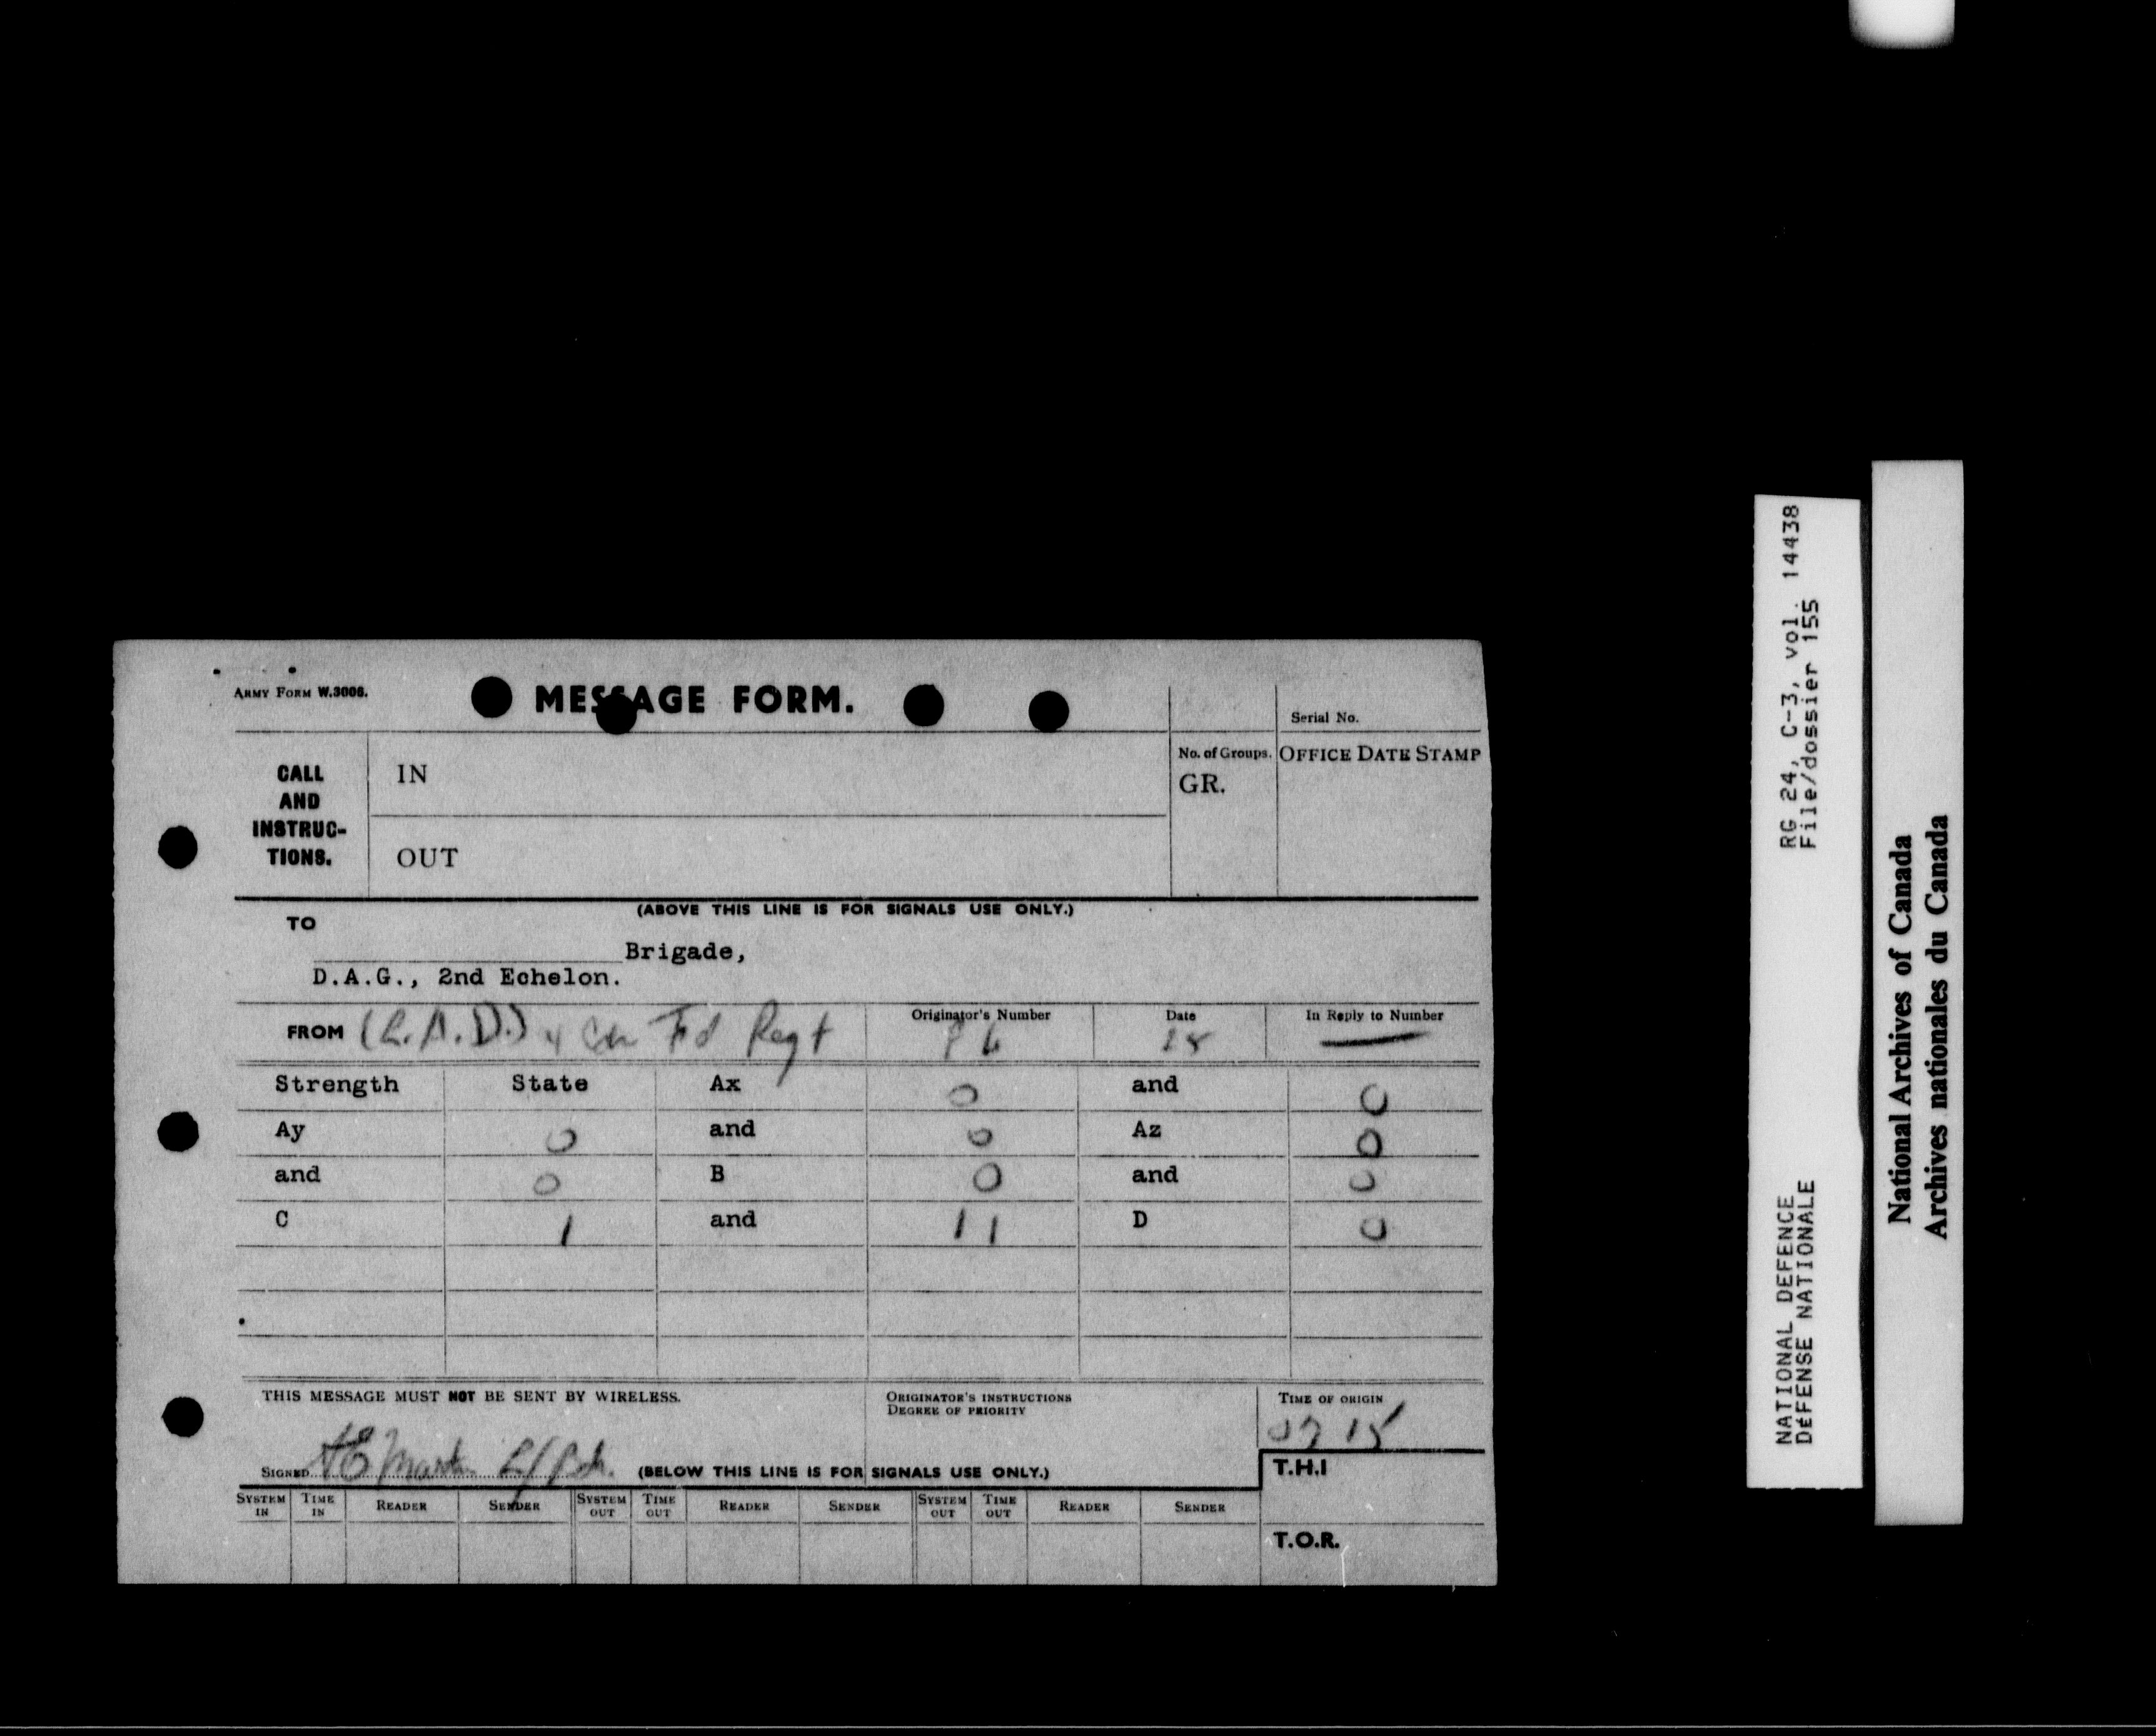 ARMY FORM W.3006.
MESSAGE FORM.
Serial No.
CALL AND INSTRUC-TIONS.
IN
OUT
No. of Groups.
GR.
OFFICE DATE STAMP
(ABOVE THIS LINE IS FOR SIGNALS USE ONLY.)
TO
Brigade,
D.A.G., 2nd Echelon.
FROM (L.A.D.) 4 Cdn Fd Regt
Originator's Number
Date
In Reply to Number —
Strength State Ax 0 and 0
Ay 0 and 0 Az 0
and 0 B 0 and 0
C 1 and 11 D 0
THIS MESSAGE MUST NOT BE SENT BY WIRELESS.
ORIGINATOR'S INSTRUCTIONS
DEGREE OF PRIORITY
TIME OF ORIGIN
0715
SIGNED
(BELOW THIS LINE IS FOR SIGNALS USE ONLY.)
T.H.I
SYSTEM IN TIME IN READER SENDER SYSTEM OUT TIME OUT READER SENDER SYSTEM OUT TIME OUT READER SENDER
T.O.R.
NATIONAL DEFENCE RG 24, C-3, vol. 14438
DÉFENSE NATIONALE File/dossier 155
National Archives of Canada
Archives nationales du Canada